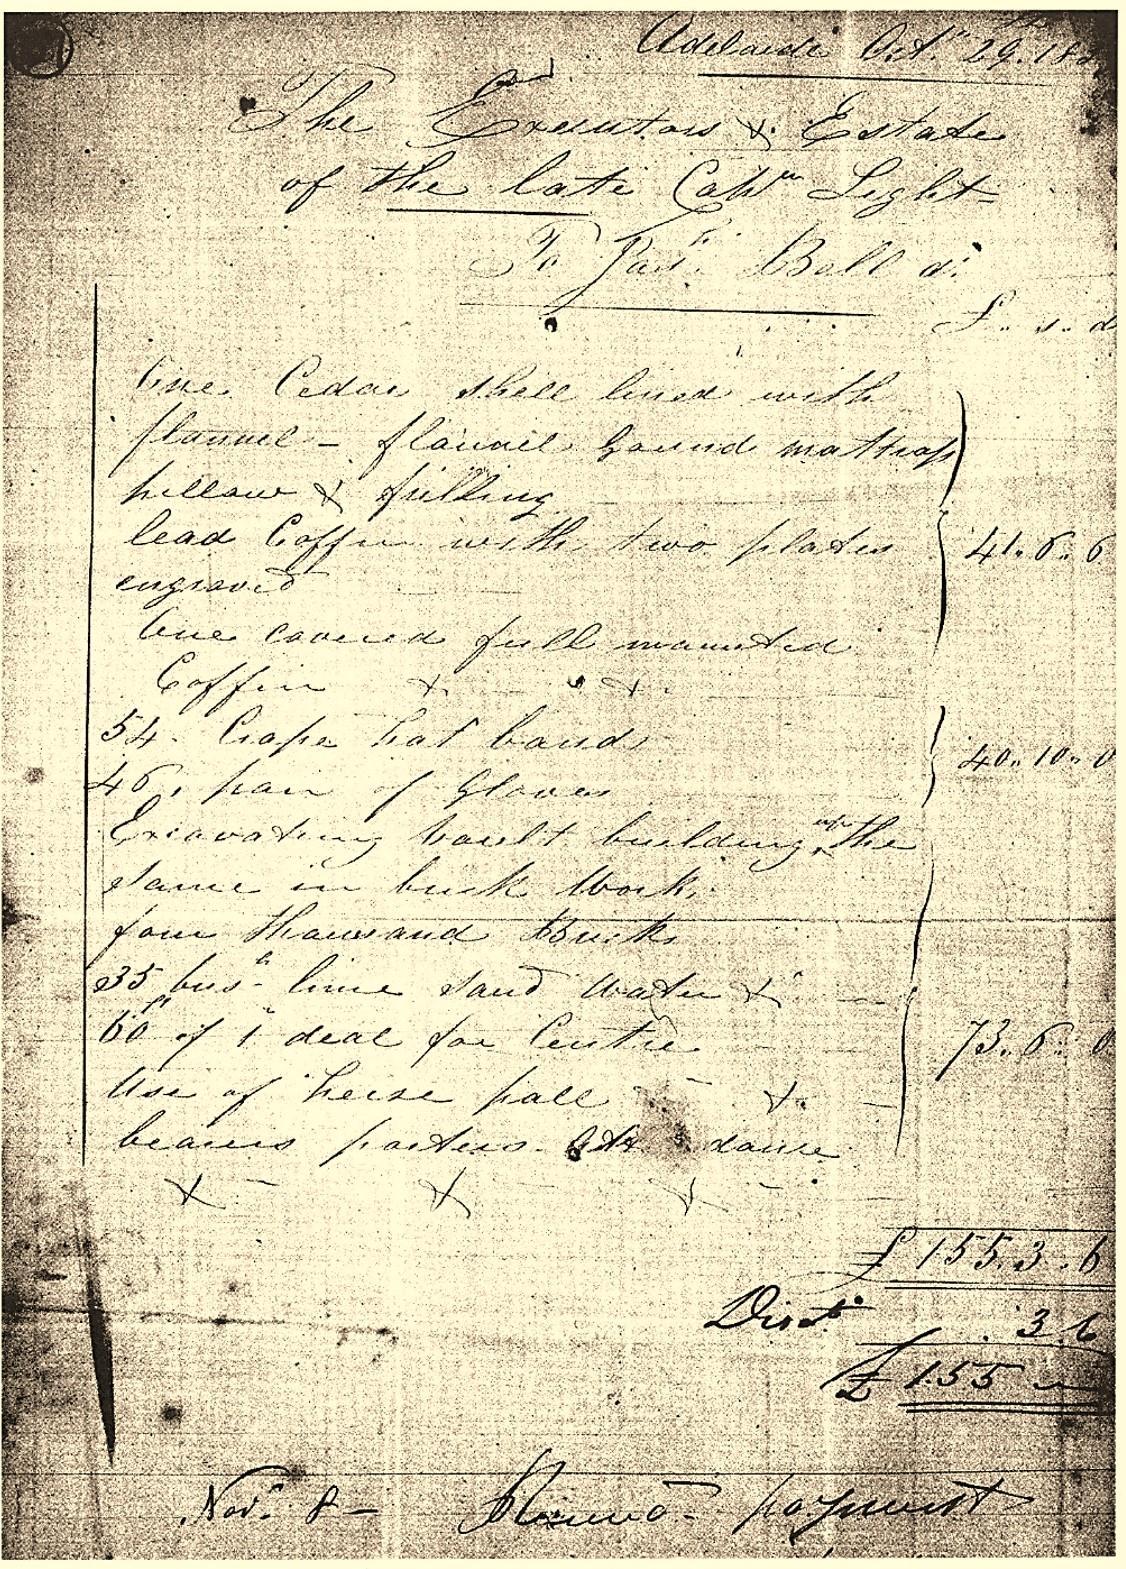 Adelaide Oct.r 29. 18
The Executors & Estate
of the late Capt.n Light
To Ja.s Ball d.r
£ .. s .. d
One Cedar shell lined with
flannel - flannel Gound mattrass
pillow & frilling
lead Coffin with two plates
engraved
One covered full mounted
Coffin
54. Crape hat bands
46. pair of Gloves
Excavating Vault building up the
same in brick Work.
four thousand Bricks
35 bus.h lime sand Water &
60 ft of 1" deal for Centre
Use of herse pall
bearers porters Attendance
41.. 6.. 6
40.. 10.. 0
73.. 6.. 0
£ 155. 3. 6
Disct. . 3. 6
£ 155 —
Nov.r 8 - Received payment